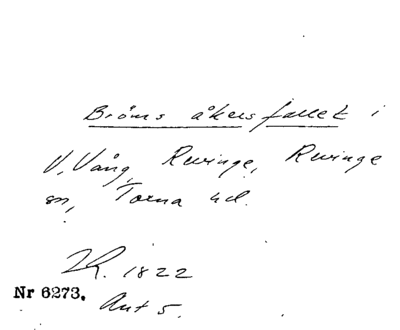 Bröms åkersfallet i
V. Vång, Revinge, Revinge
sn, Torna hd.
LR. 1822
Nr 6273.
Akt 5.